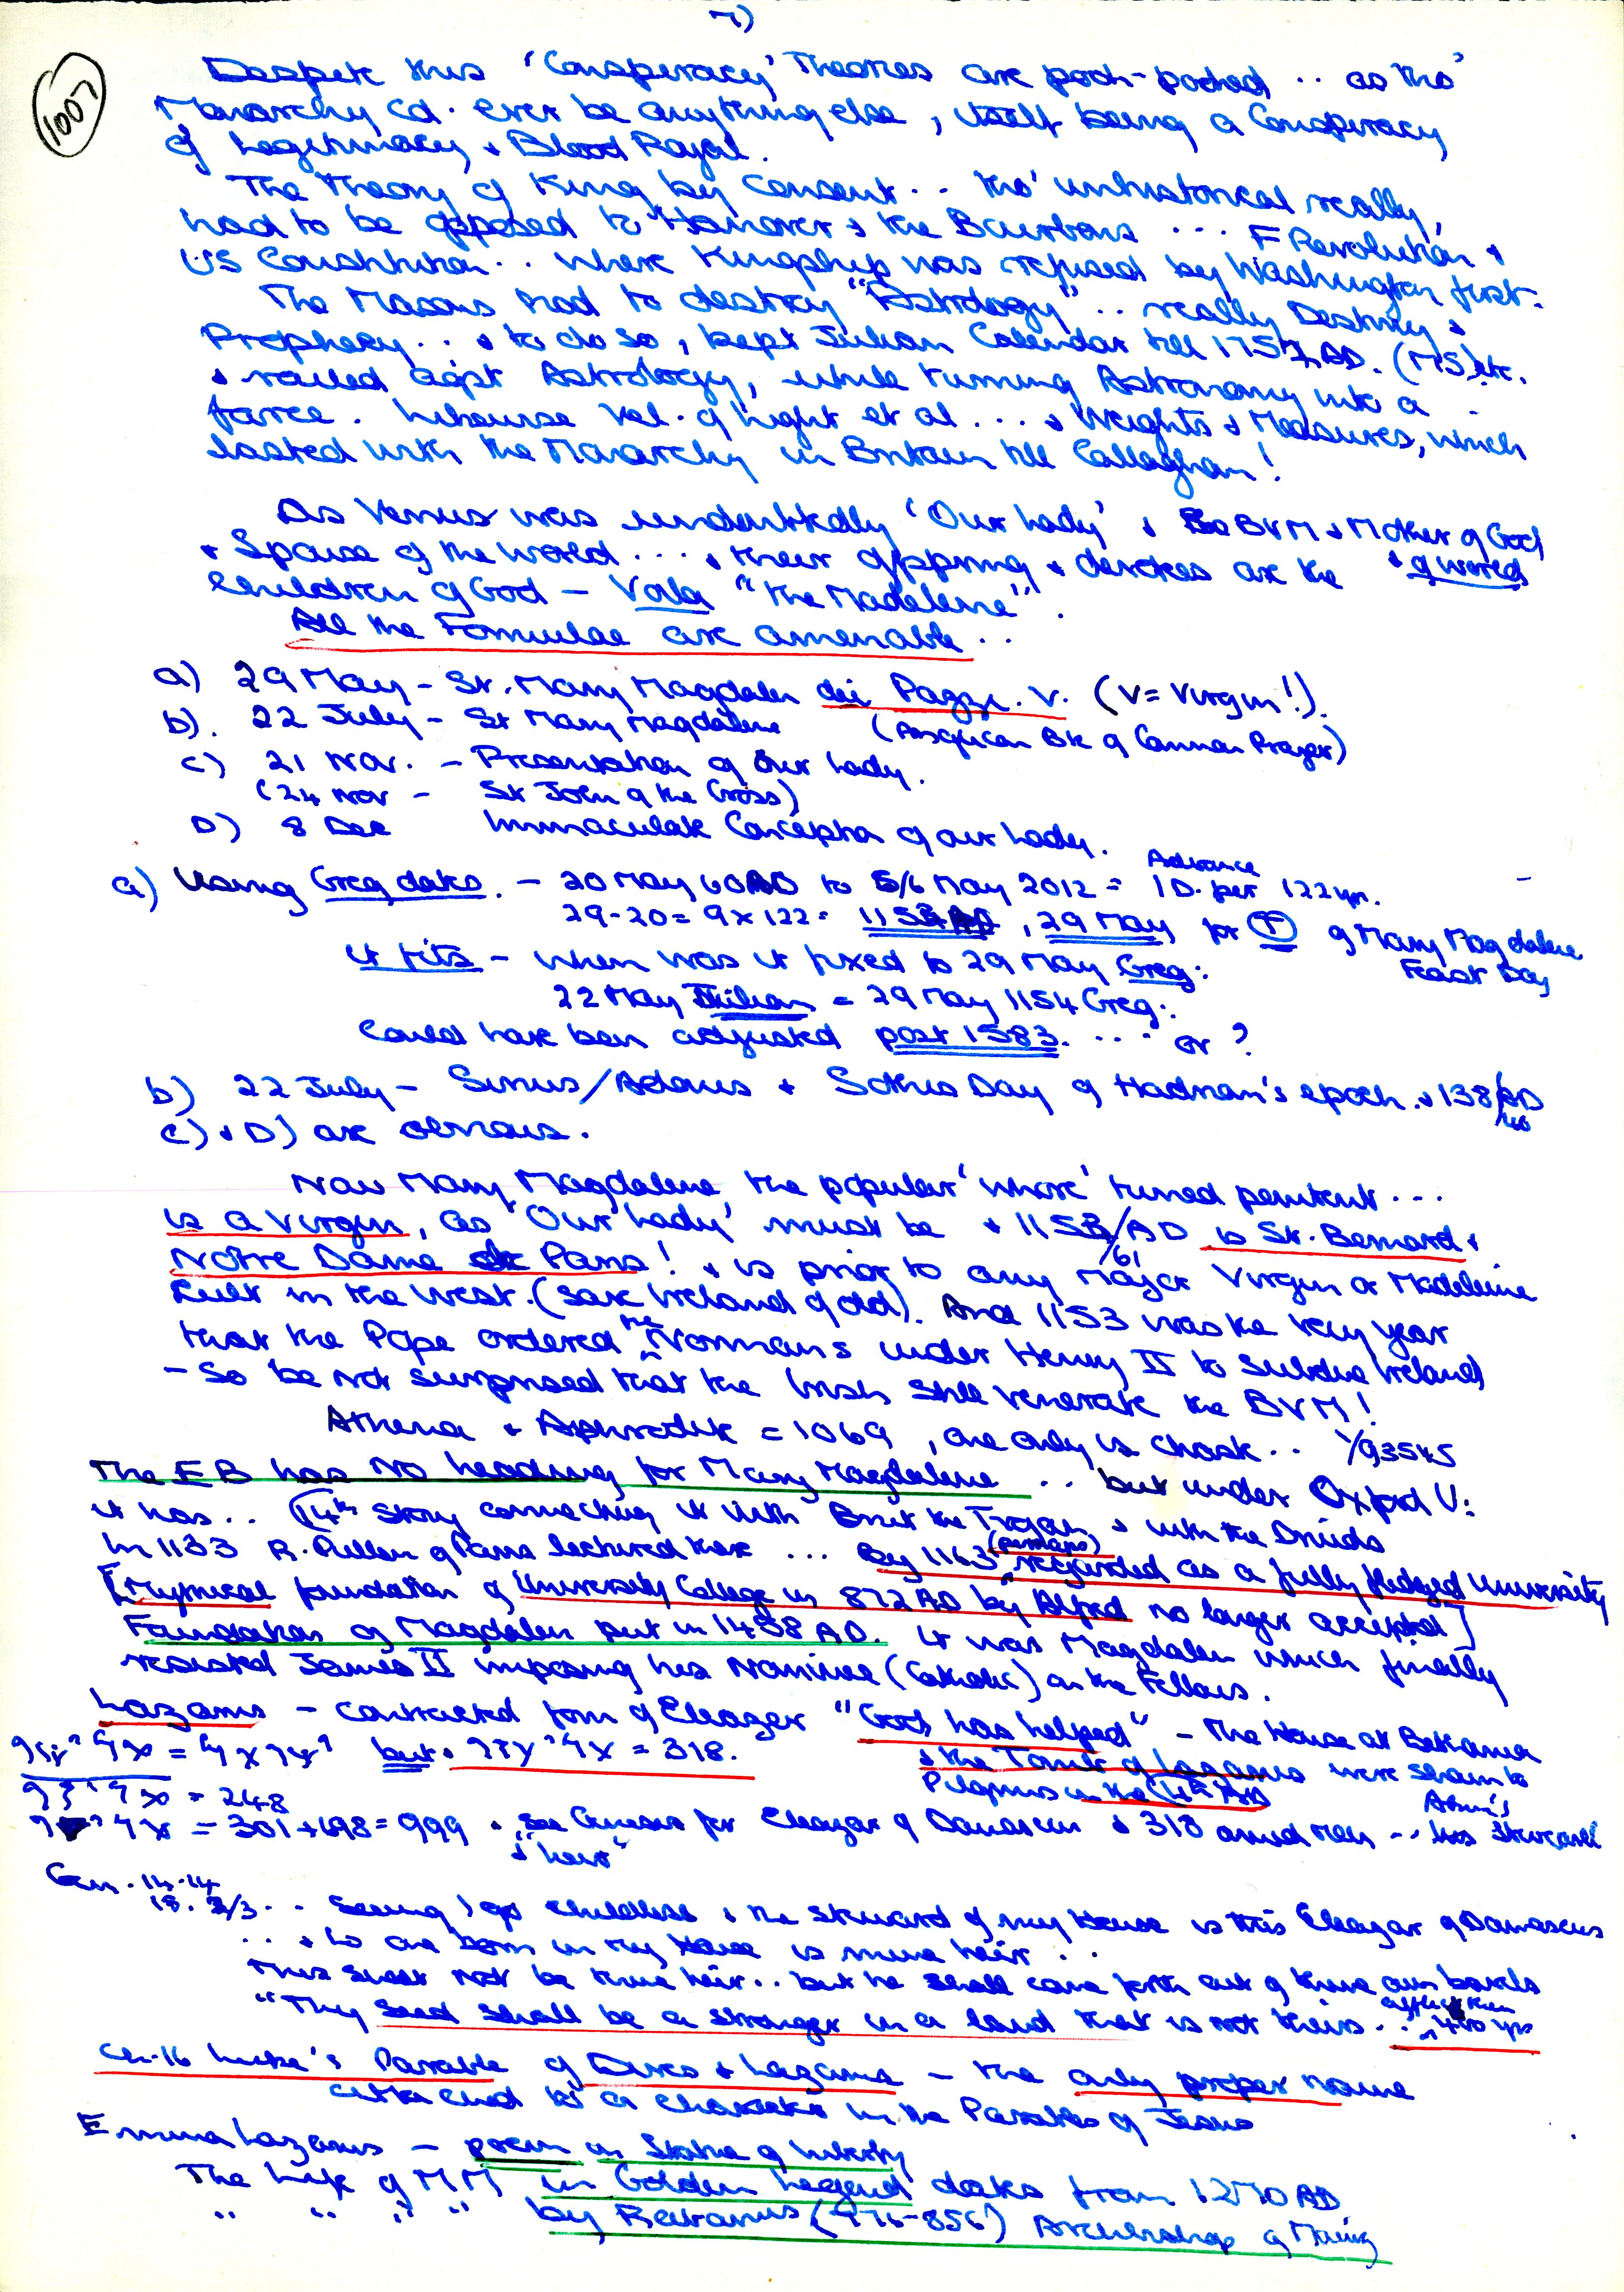 7)
1007
Despite this 'Conspiracy' Theories are pooh-poohed .. as tho'
Monarchy cd. ever be anything else, itself being a Conspiracy
of Legitimacy & Blood Royal.
The Theory of King by Consent .. tho' unhistorical really,
had to be opposed to Hanover & the Bourbons ... F Revolution &
US Constitution .. where Kingship was refused by Washington first.
The Masons had to destroy "Astrology" .. really Destiny &
Prophecy .. & to do so, kept Julian Calendar till 1752 AD. (MS) etc.
& railed agst Astrology, while turning Astronomy into a
farce. Likewise Vel. of Light et al ... & Weights & Measures, which
lasted with the Monarchy in Britain till Callaghan!
As Venus was undoubtedly 'Our Lady' & BVM & Mother of God
& Spouse of the World ... & their offspring & devotees are the & of world
Children of God - Voila "the Madeleine".
All the Formulae are amenable ..
a) 29 May - St. Mary Magdalen dei Pazzi. V. (V = Virgin!).
b). 22 July - St Mary Magdalene (Anglican Bk of Common Prayer)
c) 21 Nov. - Presentation of Our Lady.
(24 Nov - St John of the Cross)
D) 8 Dec Immaculate Conception of our Lady.
a) Using Greg dates. - 20 May 60 AD to 5/6 May 2012 = Advance 1 D. per 122 yr.
29-20 = 9 x 122 = 1153 AD, 29 May for of Mary Magdalene
Feast Day
It fits - when was it fixed to 29 May Greg:
22 May Julian = 29 May 1154 Greg:.
Could have been adjusted post 1583. ... or?
b) 22 July - Sirius/Adonis & Sothis Day of Hadrian's epoch. & 138 AD
/40
c) & D) are obvious.
Now Mary Magdalene, the popular 'whore' turned penitent ...
is a virgin, as 'Our Lady' must be & 1153/AD is St. Bernard &
/61
Notre Dame de Paris! & is prior to any major Virgin or Madeleine
Cult in the West. (save Ireland of old). And 1153 was the very year
that the Pope ordered the Normans under Henry II to subdue Ireland
- So be not surprised that the Irish still venerate the BVM!
Athena & Aphrodite = 1069, one only is chaste .. 1/93545
The EB has No heading for Mary Magdalene .. but under Oxford U:
it has .. 14th Story connecting it with Brut the Trojan & with the Druids
In 1133 R. Pullen of Paris lectured there ... By 1163 (perhaps) regarded as a fully fledged University
[Mythical foundation of University College in 872 AD by Alfred no longer accepted]
Foundation of Magdalen put in 1458 AD. It was Magdalen which finally
resisted James II imposing his Nominee (Catholic) on the Fellows.
Lazarus - contracted form of Eleazer "God has helped" - The House at Bethania
& the Tomb of Lazarus were shown to
Pilgrims in the 4th AD
but = 318.
= 248
= 301 + 698 = 999. See Genesis for Eleazar of Damascus & 318 armed men .. Abm's his Steward
& "heir"
Gen. 14.14
15. 2/3 .. Seeing I go childless & the steward of my House is this Eleazar of Damascus
.. & lo one born in my House is mine heir ..
This shall not be thine heir .. but he shall come forth out of thine own bowels
"Thy Seed shall be a stranger in a land that is not theirs .. afflict them 400 yrs
Ch. 16 Luke's Parable of Dives & Lazarus - the only proper name
attached to a character in the Parables of Jesus
Emma Lazarus - poem on Statue of Liberty
The Life of MM in Golden Legend dates from 1270 AD
" " " " by Rabanus (776-856) Archbishop of Mainz